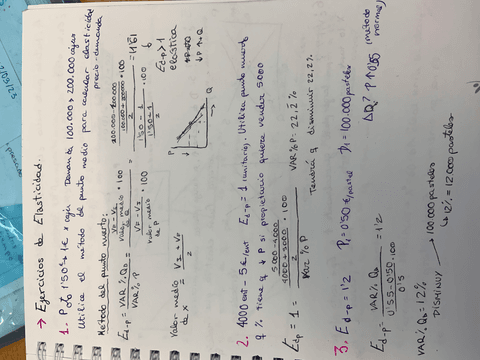 → Ejercicios de Elasticidad.
1. P↑ de 1'50 a 1€ x caja. Demanda 100.000 a 200.000 cajas
Utiliza el método de punto medio para calcular elasticidad
precio-demanda
Método del punto medio:
Ed-p = VAR % Qd / VAR % P = (VF - VI / Valor medio de Q · 100) / (VF - VI / Valor medio de P · 100) = (200.000 - 100.000 / (100.000 + 200.000 / 2) · 100) / (1'50 - 1 / (1'50 + 1 / 2) · 100) = 1'161
Valor medio de x = VI + VF / 2
P
Q
Ed-p > 1
elástica
↓P ↑Q
2. 4000 ent - 5€/ent Ed-p = 1 (unitaria). Utiliza punto medio
Q % tiene q ↓ P si propietario quiere vender 5000
Edp = 1 = (5.000 - 4000 / (4000 + 5000 / 2) · 100) / VAR % P
VAR % P: 22,2 %
Tendrá q disminuir 22,2 %
3. Ed-p = 1'2 P1 = 0'50 €/pastel D1 = 100.000 pasteles
ΔQ? P↑ 0,55 (método normal)
Ed-p = VAR % Qd / (0'55 - 0'50 / 0'5 · 100) = 1'2
VAR % Qd = 12 %
DISMINUY
→ 100.000 pasteles
→ 12% = 12.000 pasteles